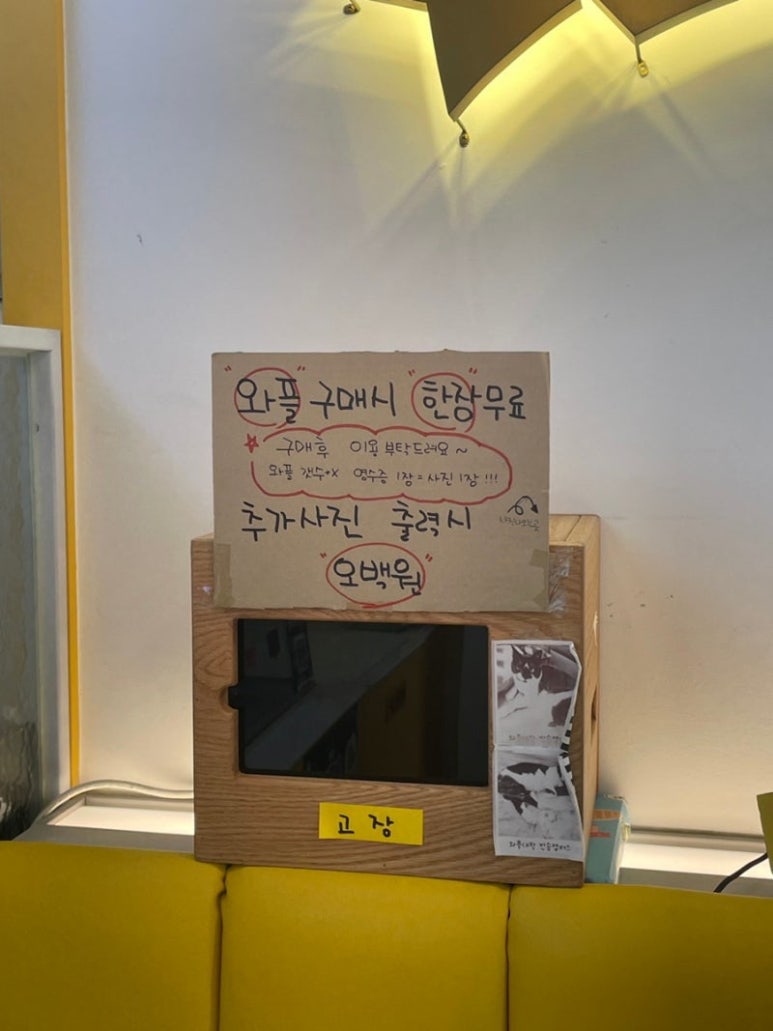 "와플" 구매시 "한장"무료
구매후 이용 부탁드려요~
와플 갯수+X 영수증 1장=사진 1장!!!
추가사진 출력시
"오백원"
고장
와플대학 안승캠퍼스